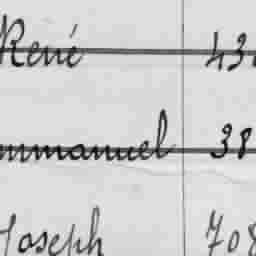 René 43
mmanuel 38
Joseph 708